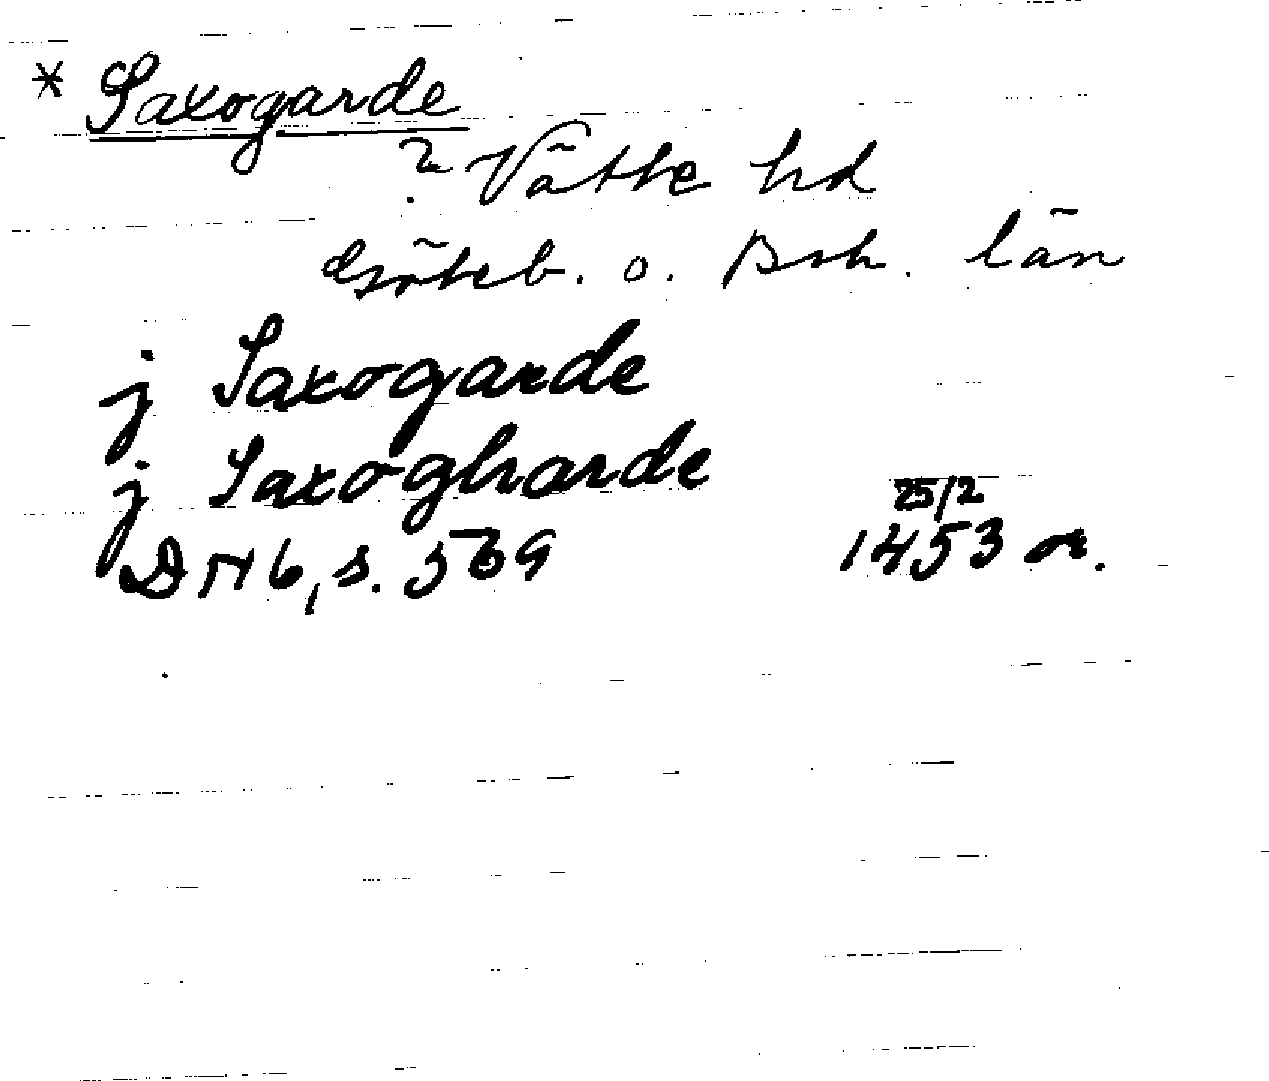 * Saxogarde
? Vätte hd
Göteb. o. Boh. län
j Saxogarde
j Saxogharde
25/2
DN 6, s. 569 1453 or.